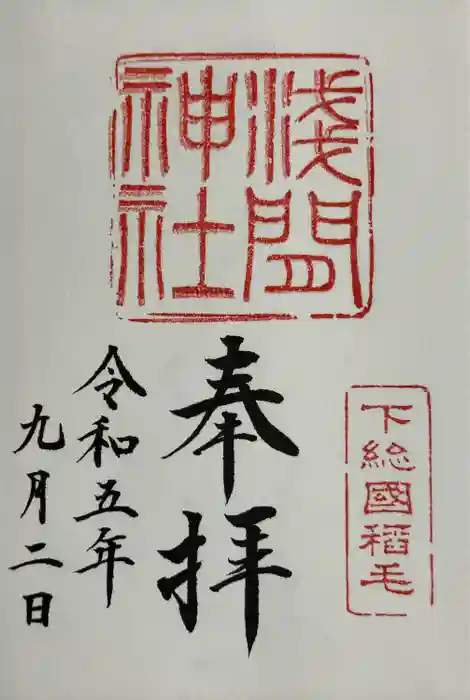 淺間
神社
下総國稲毛
奉拝
令和五年
九月二日